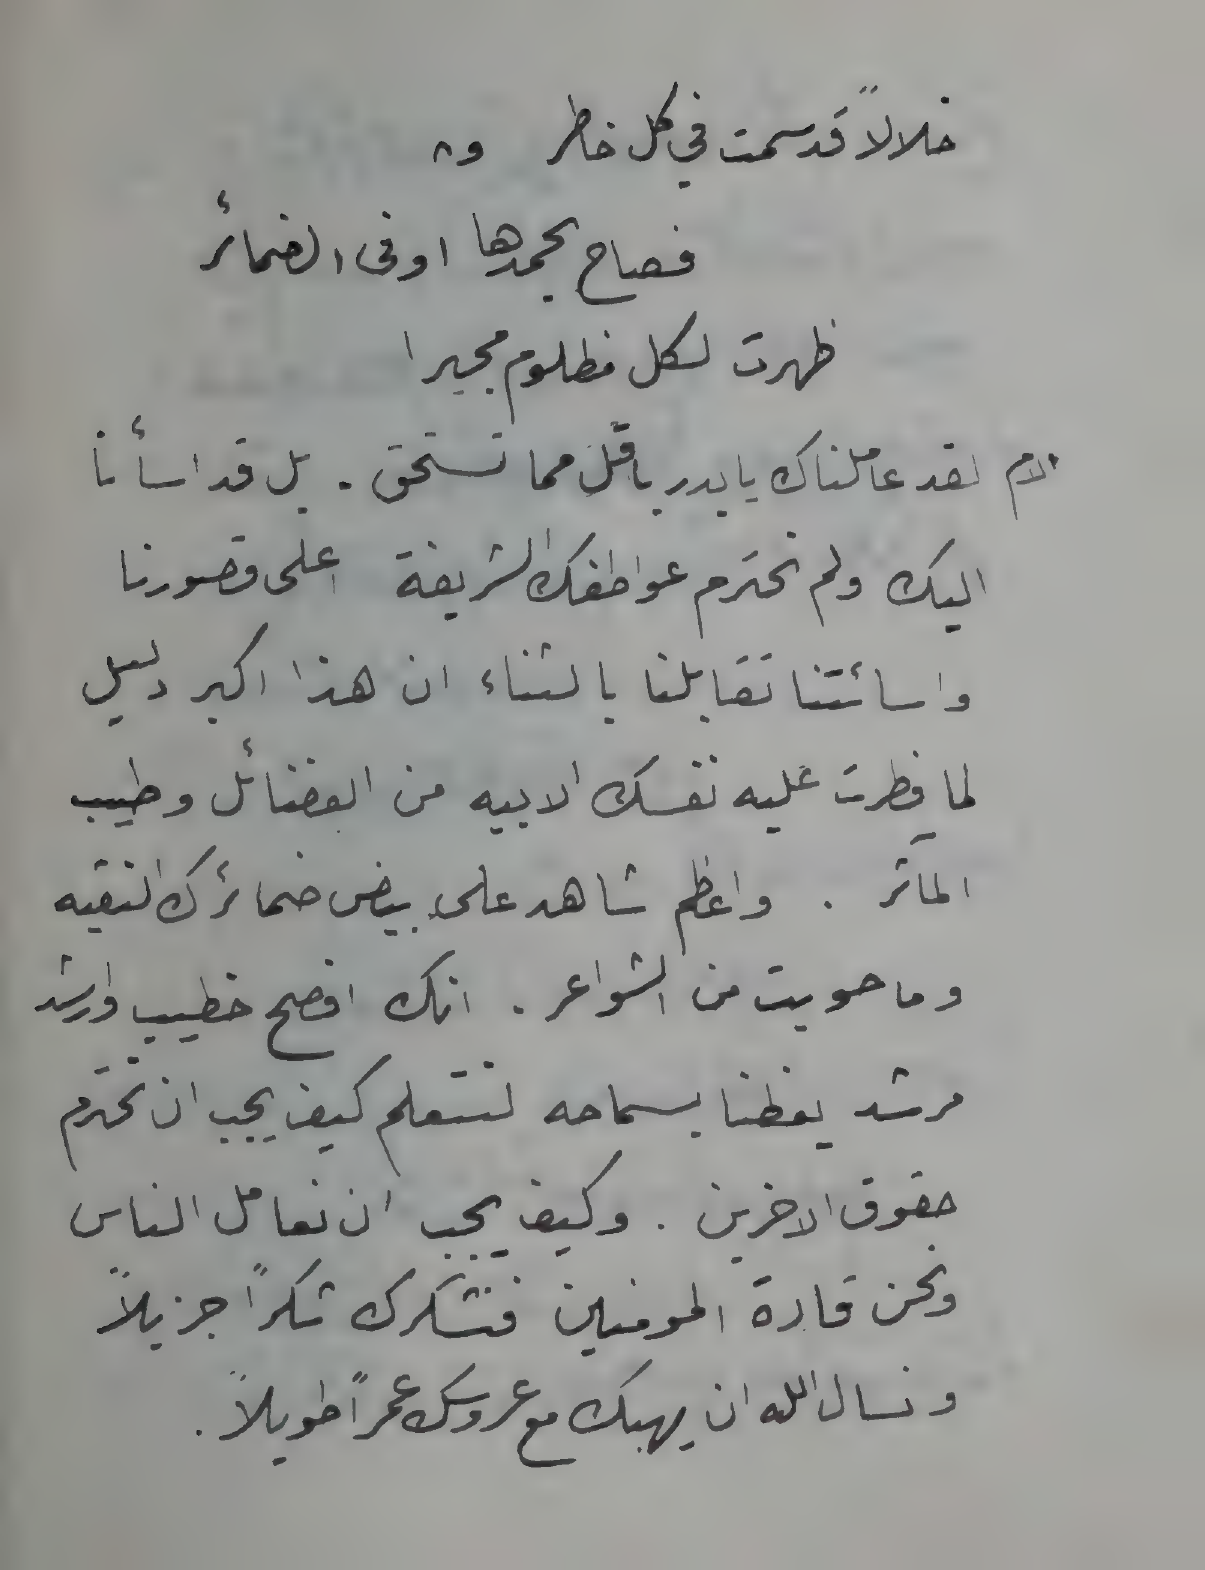 خلالاً قد سمت في كل خاطر
فصاح بحمدها اوفى الضمائر
ظهرت لكل مظلوم مجيرا
الام لقد عاملناك يا بدر باقل مما تستحق . بل قد اسأنا
اليك ولم نحترم عواطفك الشريفة اعلى قصورنا
واسائتنا تقابلنا بالثناء ان هذا اكبر دليل
لما فطرت عليه نفسك الابيه من الفضائل وطيب
المآثر . واعظم شاهد على بيض ضمائرك النقيه
وما حويت من الشواعر . انك افصح خطيب وارشد
مرشد يعظنا بسماحه لنتعلم كيف يجب ان نحترم
حقوق الاخرين . وكيف يجب ان نعامل الناس
ونحن قادة المومنين فنشكرك شكراً جزيلاً
ونسال الله ان يهبك مع عروسك عمراً طويلاً .